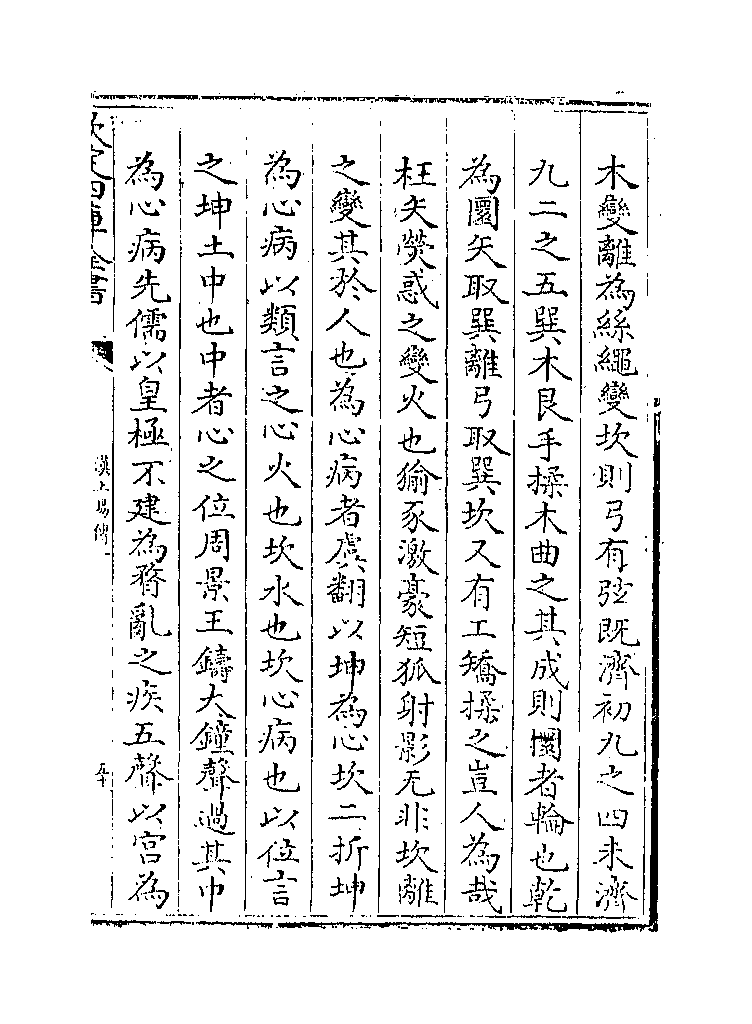 木變離為絲繩變坎則弓有弦既濟初九之四未濟
九二之五巽木艮手揉木曲之其成則圜者輪也乾
為圜矢取巽離弓取巽坎又有工矯揉之豈人為哉
枉矢熒惑之變火也獝豕激豪短狐射影无非坎離
之變其於人也為心病者虞翻以坤為心坎二折坤
為心病以類言之心火也坎水也坎心病也以位言
之坤土中也中者心之位周景王鑄大鐘聲過其中
為心病先儒以皇極不建為瞀亂之疾五聲以宮為
欽定四庫全書
漢上易傳